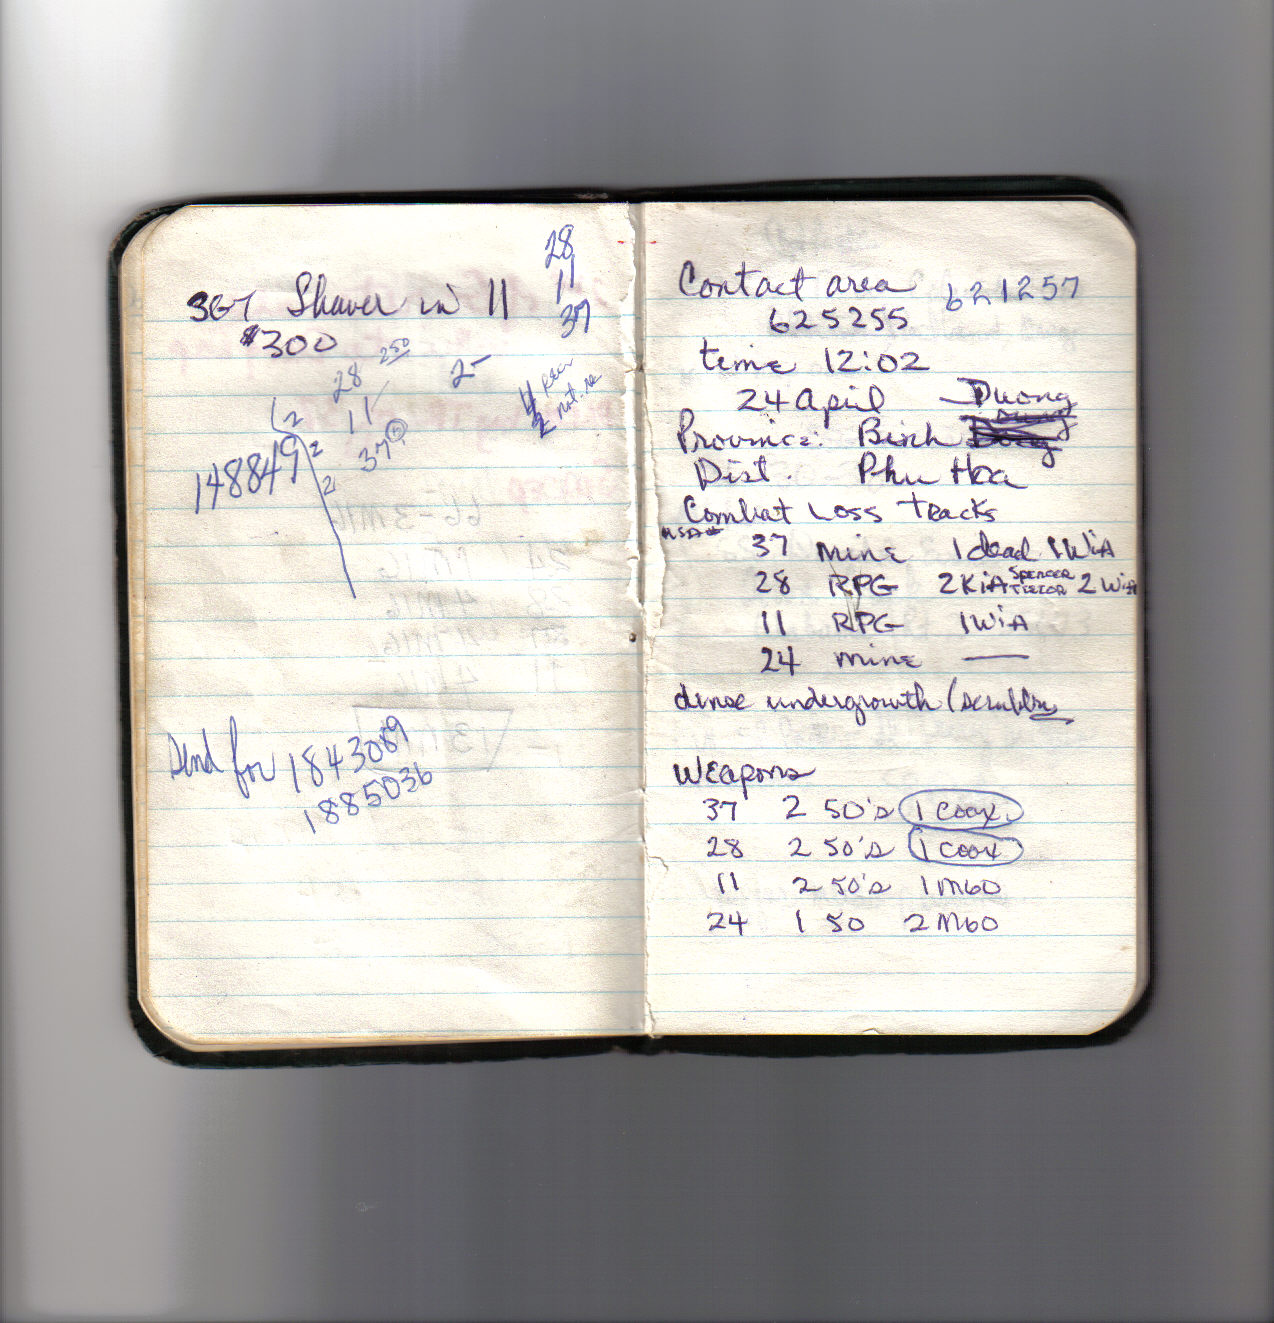 28
11
37
367 Shaver in 11
$300
250
28
11
37
2
4
2 not
148849
2
2
2
Send for 1843089
1885036
Contact area 621257
625255
time 12:02
24 April Duong
Province: Binh
Dist. Phu Hoa
Combat Loss Tracks
37 mine 1 dead 1 WiA
28 RPG 2 KiA SPENCER 2 WiA
11 RPG 1 WiA
24 mine —
dense undergrowth
Weapons
37 2 50's 1 Coax.
28 2 50's 1 coax
11 2 50's 1 M60
24 1 50 2 M60